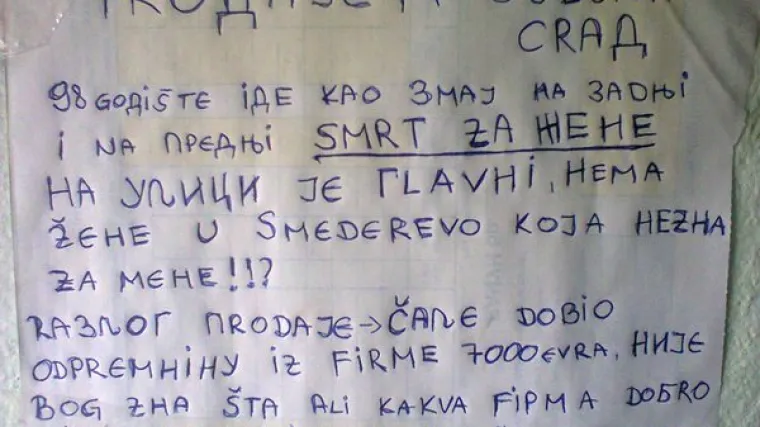 СRАД
98 GОДIŠТЕ IДЕ КАО ЗМАЈ НА ЗАДЊI
I NА ПРЕДЊI SMRT ZA ЖЕНЕ
НА УЛИЦИ ЈЕ ГLАVНI, НЕМА
ŽЕНЕ U SMEDEREVO КОЈА НЕZНА
ZА МЕНЕ!!!?
RАZЛОГ ПRОDАЈЕ→ČАЛЕ DOBIO
ODPREMНIНУ IZ FIRME 7000 EVRA, НИЈЕ
BOG ZНА ŠTA ALI KAKVA FIРМА DОБRО